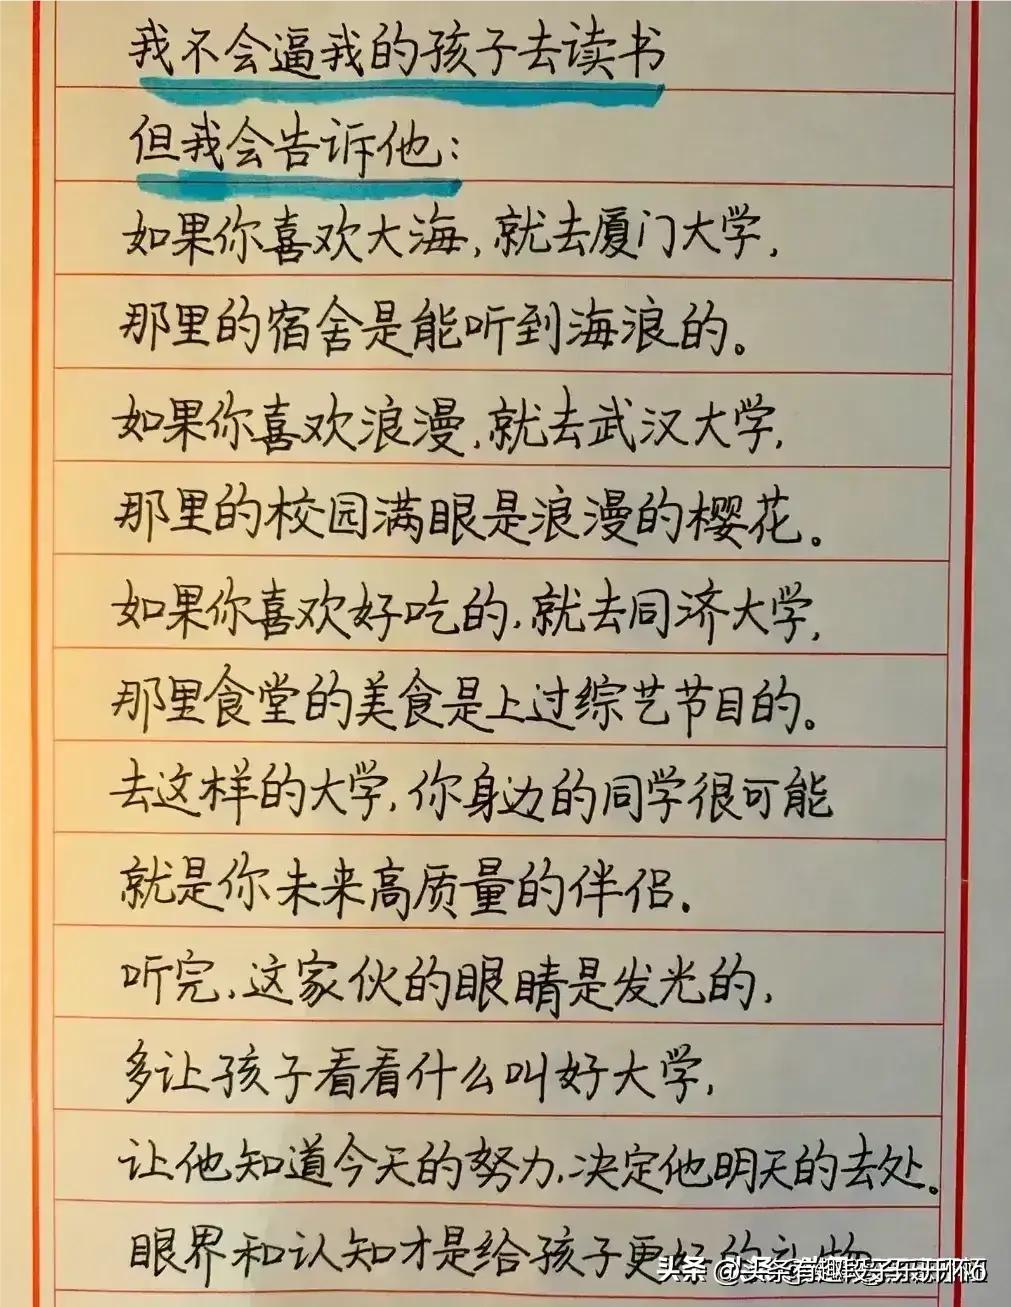 我不会逼我的孩子去读书
但我会告诉他:
如果你喜欢大海,就去厦门大学,
那里的宿舍是能听到海浪的。
如果你喜欢浪漫,就去武汉大学,
那里的校园满眼是浪漫的樱花。
如果你喜欢好吃的,就去同济大学,
那里食堂的美食是上过综艺节目的。
去这样的大学,你身边的同学很可能
就是你未来高质量的伴侣.
听完,这家伙的眼睛是发光的,
多让孩子看看什么叫好大学,
让他知道今天的努力,决定他明天的去处。
眼界和认知才是给孩子更好的礼物
头条 @